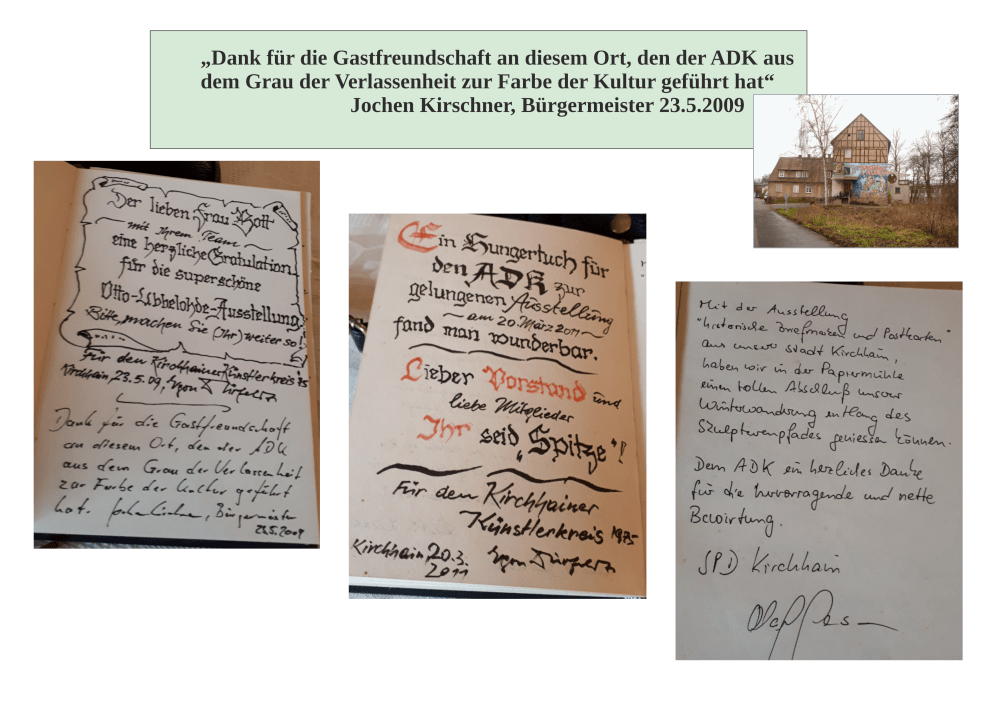 „Dank für die Gastfreundschaft an diesem Ort, den der ADK aus
dem Grau der Verlassenheit zur Farbe der Kultur geführt hat“
Jochen Kirschner, Bürgermeister 23.5.2009
Der lieben Frau Bott
mit Ihrem Team
eine herzliche Gratulation
für die superschöne
Otto-Ubbelohde-Ausstellung.
Bitte, machen Sie (Ihr) weiter so!
Für den Kirchhainer Künstlerkreis 75
Kirchhain, 23.5.09, Egon
Dank für die Gastfreundschaft
an diesem Ort, den der ADK
aus dem Grau der Verlassenheit
zur Farbe der Kultur geführt
hat. Jochen Kirschner, Bürgermeister
23.5.2009
Ein Hungertuch für
den ADK zur
gelungenen Ausstellung
– am 20. März 2011 –
fand man wunderbar.
Lieber Vorstand und
liebe Mitglieder
Ihr seid „Spitze"!
Für den Kirchhainer
Künstlerkreis 1975-
Kirchhain, 20.3.
2011 Egon
Mit der Ausstellung
"historische Briefmarken und Postkarten"
aus unserer Stadt Kirchhain,
haben wir in der Papiermühle
einen tollen Abschluß unserer
Winterwanderung entlang des
Skulpturenpfades geniessen können.
Dem ADK ein herzliches Danke
für die hervorragende und nette
Bewirtung.
SPD Kirchhain
Olaf